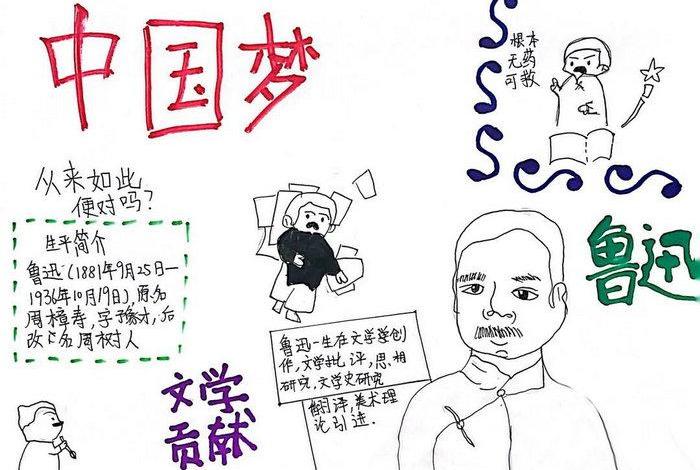 中国梦
根本
无药
可救
从来如此
便对吗?
生平简介
鲁迅(1881年9月25日—
1936年10月19日),原名
周樟寿,字豫才,后
改名周树人
鲁迅
鲁迅一生在文学创
作,文学批评,思相
研究,文学史研究
翻译,美术理
论引进.
文学
贡献